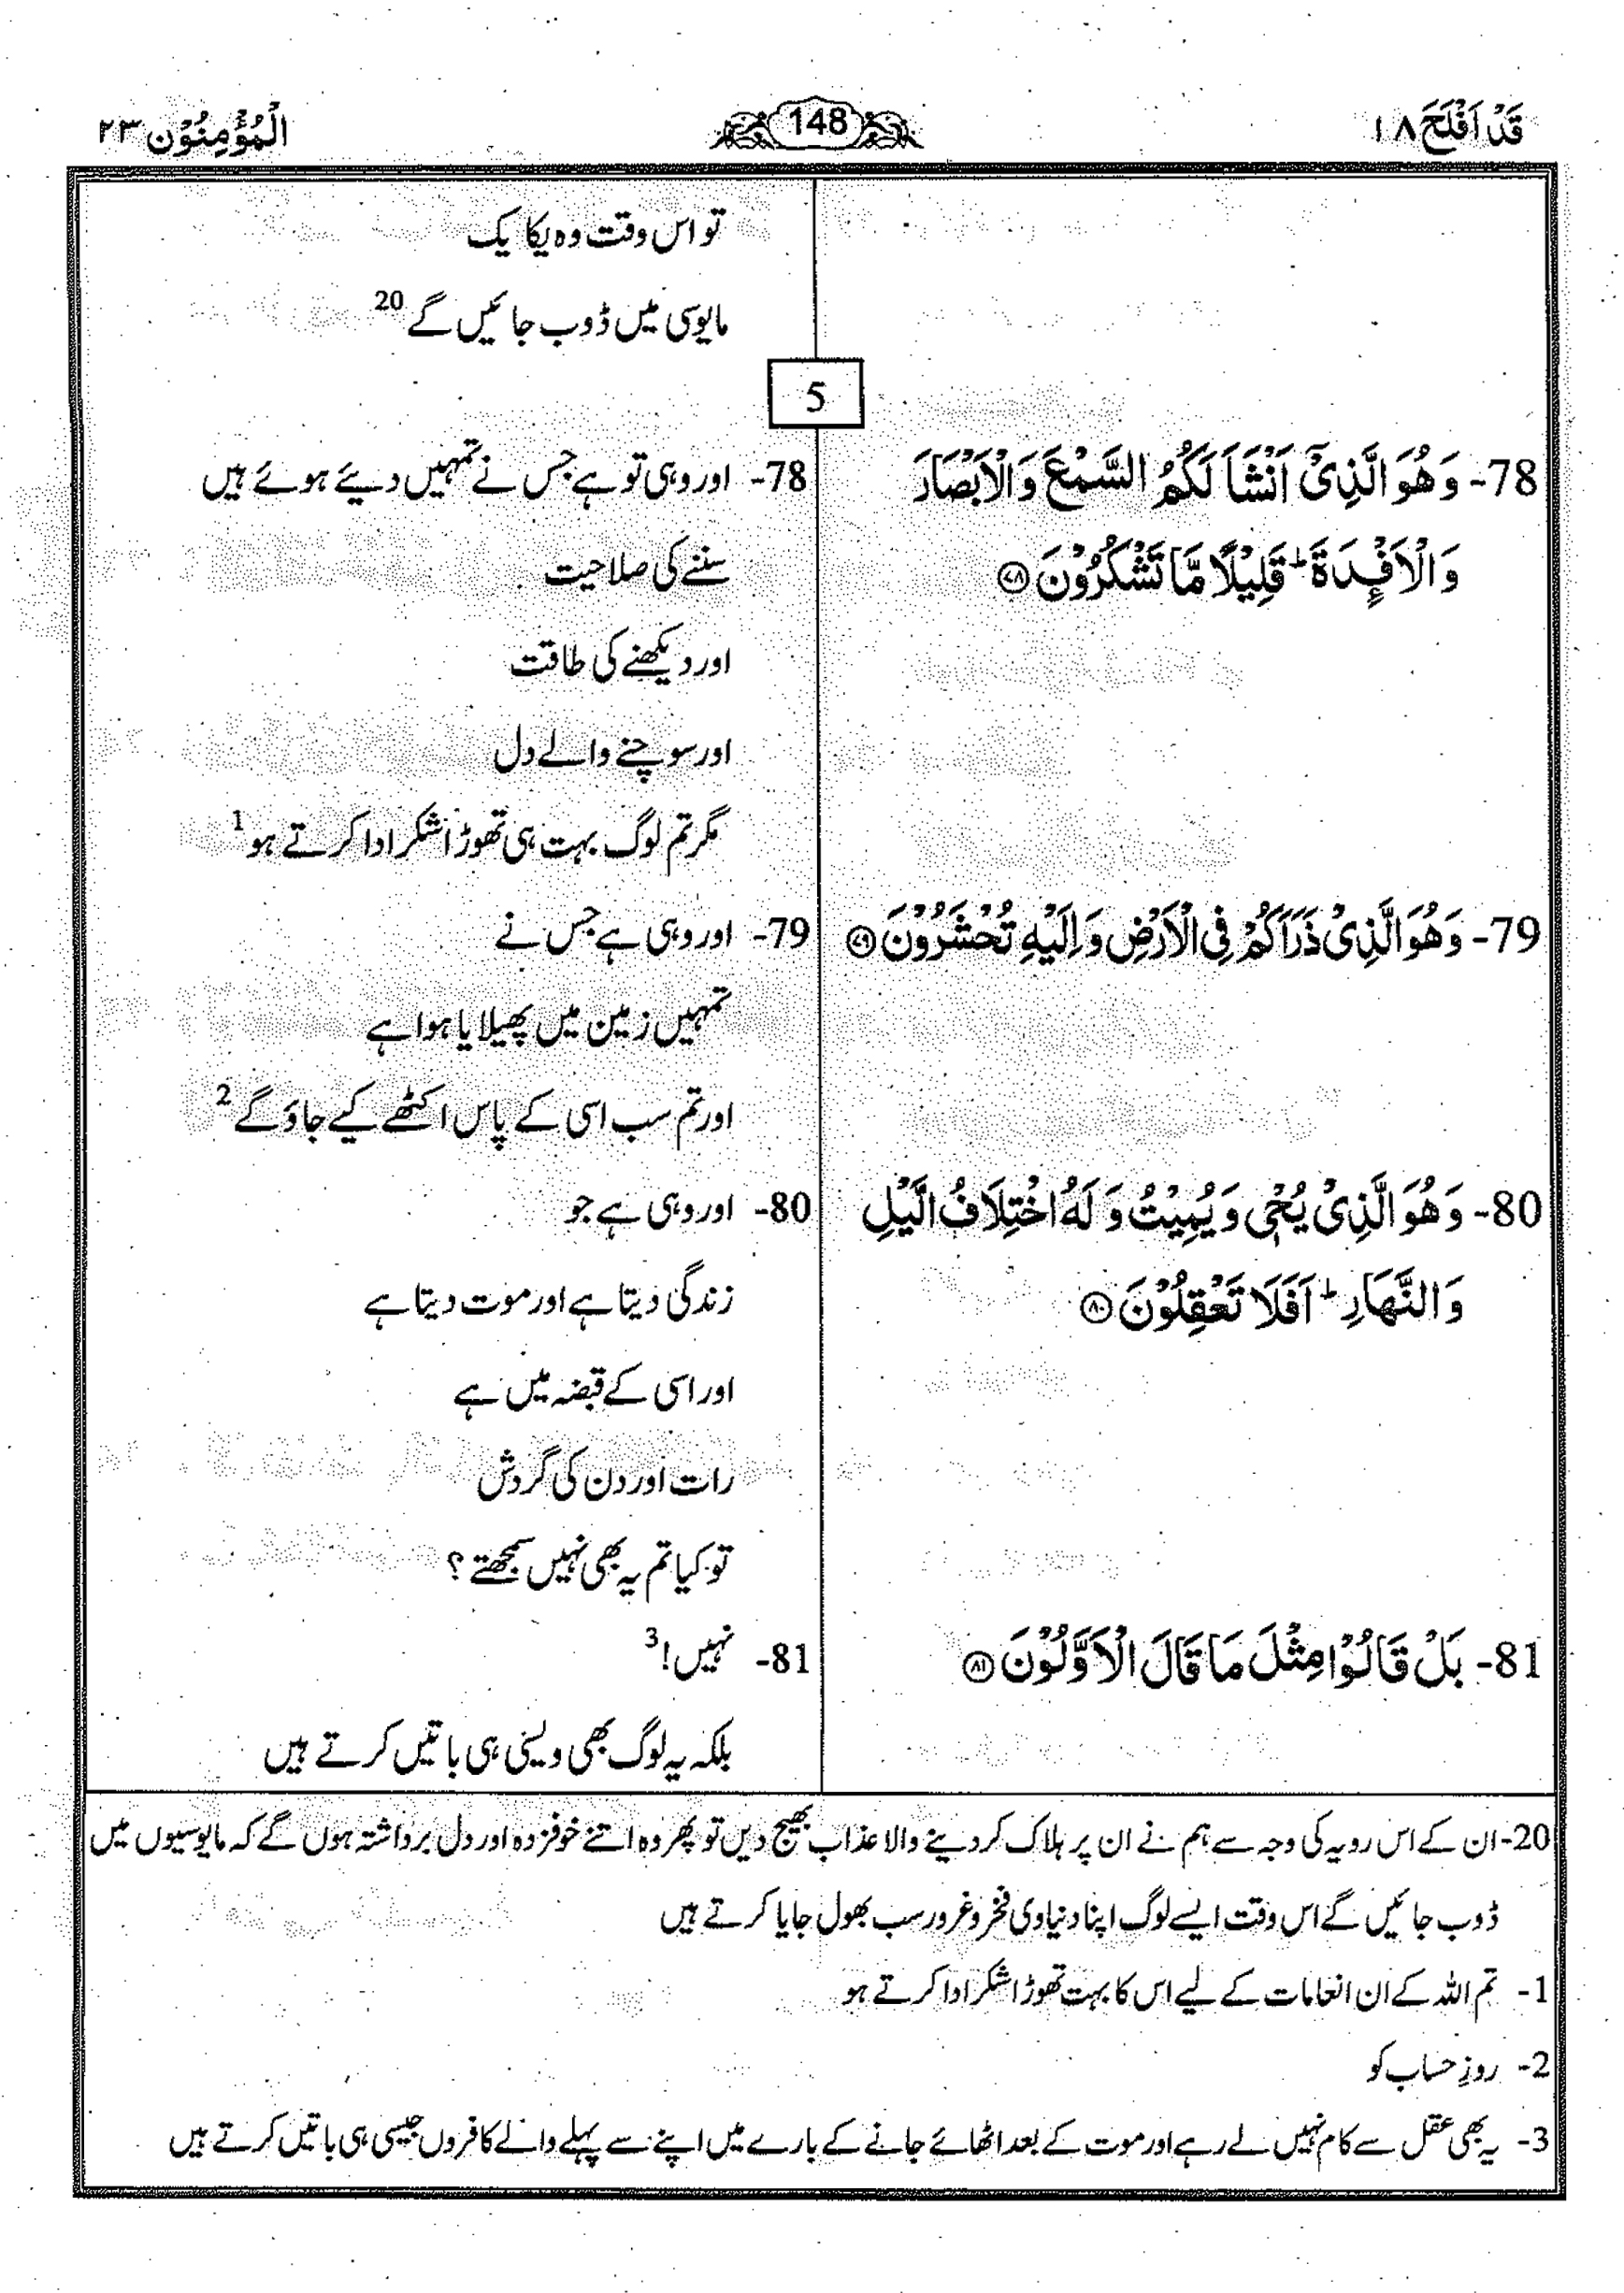 قَدْ اَفْلَحَ ١٨
148
الْمُؤْمِنُوْن ٢٣
تو اس وقت وہ یکا یک
مایوسی میں ڈوب جائیں گے 20
5
78- وَهُوَ الَّذِیْۤ اَنْشَاَ لَكُمُ السَّمْعَ وَالْاَبْصَارَ
وَالْاَفْـِٕدَةَ ؕ قَلِیْلًا مَّا تَشْكُرُوْنَ ﴿٧٨﴾
78- اور وہی تو ہے جس نے تمہیں دیئے ہوئے ہیں
سننے کی صلاحیت
اور دیکھنے کی طاقت
اور سوچنے والے دل
مگر تم لوگ بہت ہی تھوڑا شکر ادا کرتے ہو 1
79- وَهُوَ الَّذِیْ ذَرَاَكُمْ فِی الْاَرْضِ وَاِلَیْهِ تُحْشَرُوْنَ ﴿٧٩﴾
79- اور وہی ہے جس نے
تمہیں زمین میں پھیلایا ہوا ہے
اور تم سب اسی کے پاس اکٹھے کیے جاؤ گے 2
80- وَهُوَ الَّذِیْ یُحْیٖ وَیُمِیْتُ وَلَهُ اخْتِلَافُ الَّیْلِ
وَالنَّهَارِ ؕ اَفَلَا تَعْقِلُوْنَ ﴿٨٠﴾
80- اور وہی ہے جو
زندگی دیتا ہے اور موت دیتا ہے
اور اسی کے قبضہ میں ہے
رات اور دن کی گردش
تو کیا تم یہ بھی نہیں سمجھتے ؟
81- بَلْ قَالُوْا مِثْلَ مَا قَالَ الْاَوَّلُوْنَ ﴿٨١﴾
81- نہیں! 3
بلکہ یہ لوگ بھی ویسی ہی باتیں کرتے ہیں
20- ان کے اس رویہ کی وجہ سے ہم نے ان پر ہلاک کر دینے والا عذاب بھیج دیں تو پھر وہ اتنے خوفزدہ اور دل برداشتہ ہوں گے کہ مایوسیوں میں
ڈوب جائیں گے اس وقت ایسے لوگ اپنا دنیاوی فخر و غرور سب بھول جایا کرتے ہیں
1- تم اللہ کے ان انعامات کے لیے اس کا بہت تھوڑا شکر ادا کرتے ہو
2- روزِ حساب کو
3- یہ بھی عقل سے کام نہیں لے رہے اور موت کے بعد اٹھائے جانے کے بارے میں اپنے سے پہلے والے کافروں جیسی ہی باتیں کرتے ہیں